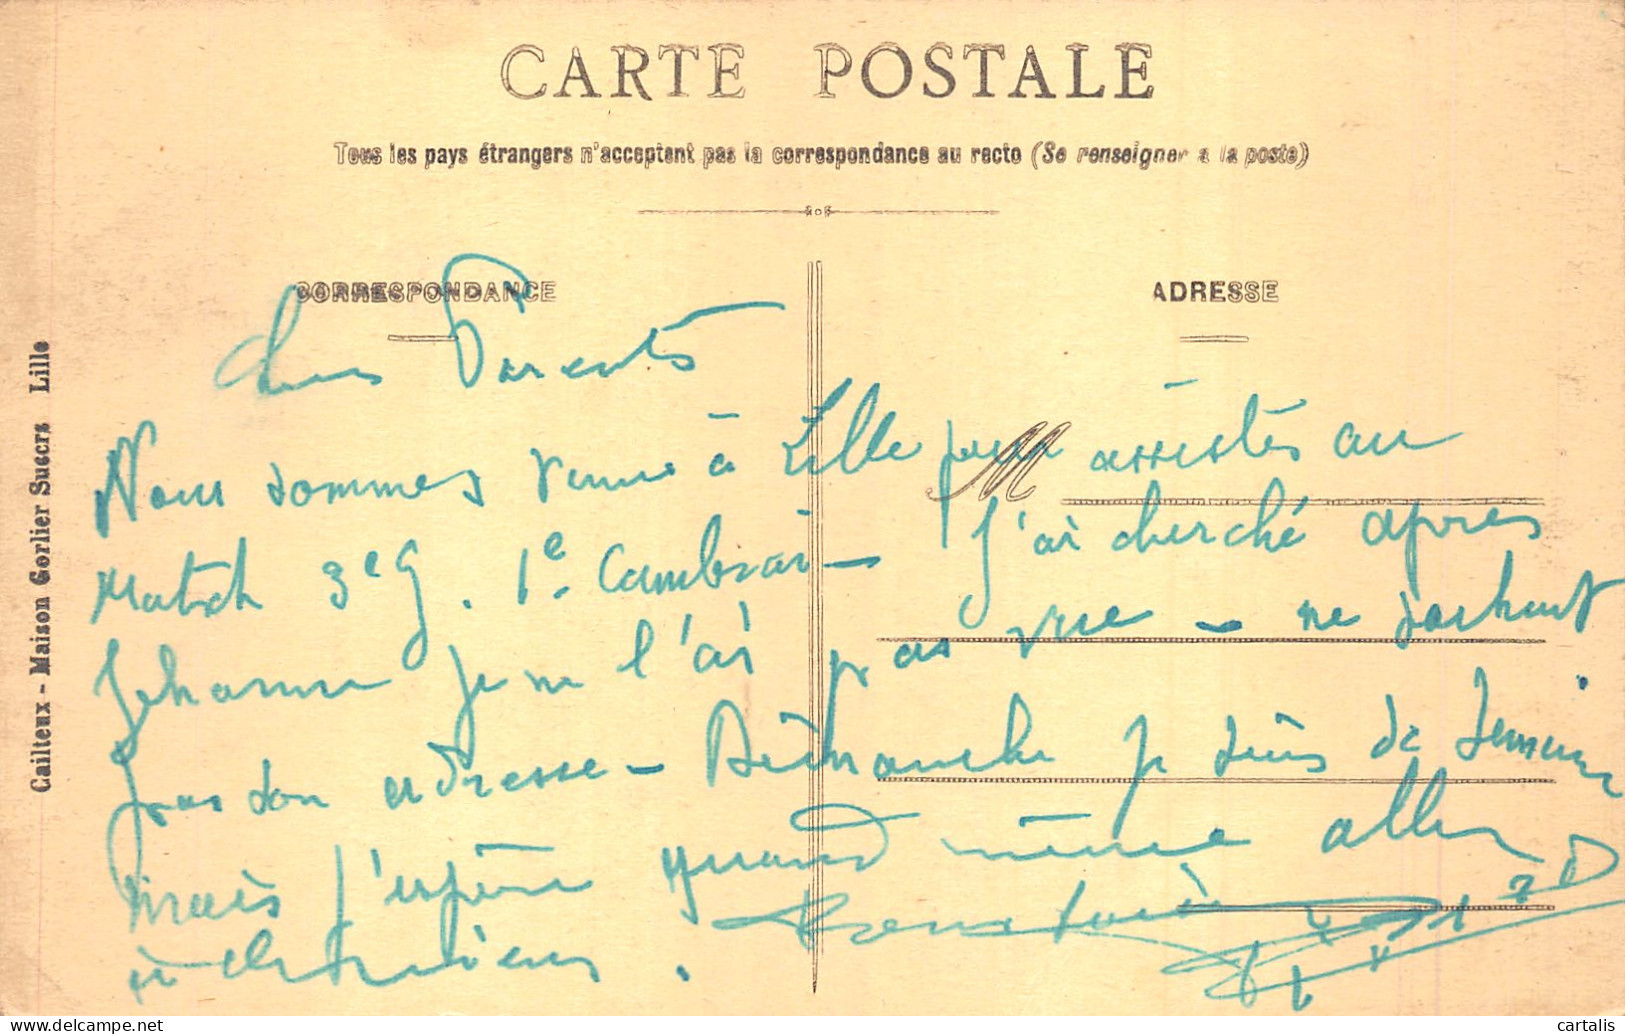 CARTE POSTALE
Tous les pays étrangers n'acceptent pas la correspondance au recto (Se renseigner à la poste)
CORRESPONDANCE
ADRESSE
Cailteux - Maison Gorlier Succrs Lille
Chers Parents
Nous sommes venus à Lille pour assistés au
Match 3e G. 1e Cambrai - J'ai cherché apres
Jehanne je ne l'ai pas vue - ne sachant
pas son adresse - Dimanche je suis de
Mais j'espère quand même aller
à
M
cartalis
www.delcampe.net